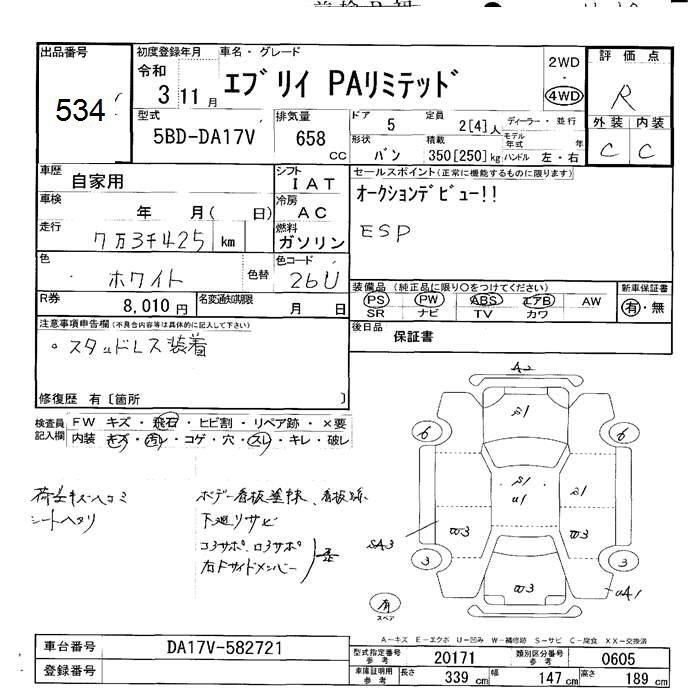 出品番号
534
初度登録年月
令和
3 11月
車名・グレード
エブリイ PAリミテッド
2WD
・
4WD
評価点
R
外装 内装
C C
型式
5BD-DA17V
排気量
658
CC
ドア
5
定員
2[4]人
ディーラー・並行
モデル
年式 年
形状
バン
積載
350[250]kg
ハンドル 左・右
車歴
自家用
シフト
IAT
セールスポイント(正常に機能するものに限ります)
オークションデビュー!!
ESP
車検
年 月( 日)
冷房
AC
走行
7万3千425 km
燃料
ガソリン
色
ホワイト
色替
色コード
26U
装備品 (純正品に限り○をつけてください)
PS PW ABS エアB AW
SR ナビ TV カワ
新車保証書
有・無
R券
8,010円
名変通知期限
月 日
後日品
保証書
注意事項申告欄(不具合内容等は具体的に記入して下さい)
。スタッドレス装着
修復歴 有[箇所 ]
検査員
記入欄
FW キズ・飛石・ヒビ割・リペア跡・×要
内装 キズ・汚レ・コゲ・穴・スレ・キレ・破レ
シートヘタリ
下廻リサビ
A2
S1
6
6
S1
U1
S1
W3
W3
SA3
3
3
W3
UA1
有
スペア
A-キズ E-エクボ U-凹み W-補修跡 S-サビ C-腐食 XX-交換済
車台番号
DA17V-582721
登録番号
型式指定番号
参考
20171
類別区分番号
参考
0605
車庫証明用
参考
長さ
339 cm
幅
147 cm
高さ
189 cm